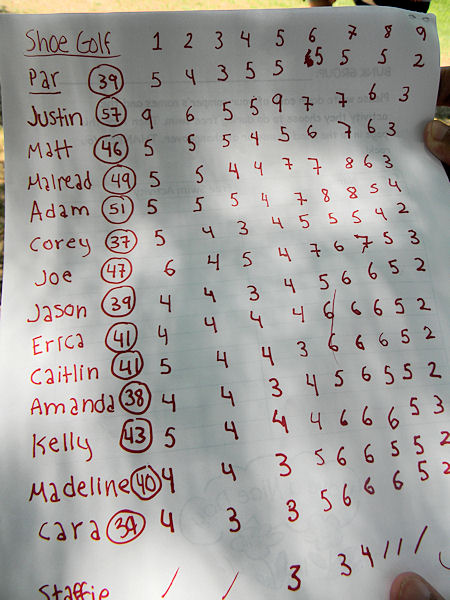 Shoe Golf 1 2 3 4 5 6 7 8 9
Par 39 5 4 3 5 5 5 5 5 2
Justin 57 9 6 5 5 9 7 7 6 3
Matt 46 5 5 5 4 5 6 7 6 3
Mairead 49 5 5 4 4 7 7 8 6 3
Adam 51 5 5 5 4 7 8 8 5 4
Corey 37 5 4 3 4 5 5 5 4 2
Joe 47 6 4 5 4 7 6 7 5 3
Jason 39 4 4 3 4 5 6 6 5 2
Erica 41 4 4 4 4 6 6 6 5 2
Caitlin 41 5 4 4 3 6 6 6 5 2
Amanda 38 4 4 3 4 5 6 5 5 2
Kelly 43 5 4 4 4 6 6 6 5 3
Madeline 40 4 4 3 5 6 6 5 5 2
Cara 39 4 3 3 5 6 6 6 5 2
Staffie / / 3 3 4 / / /